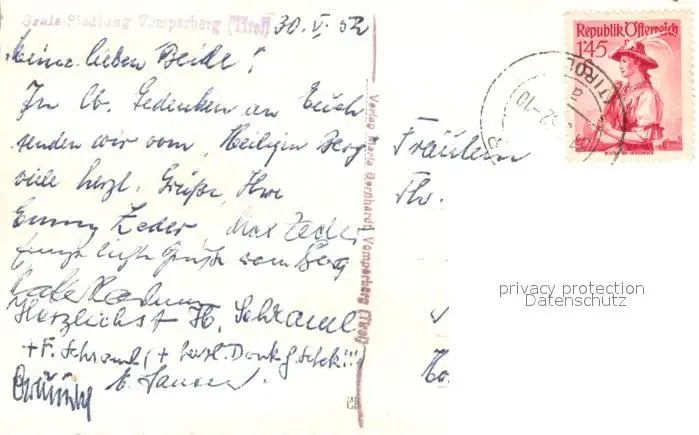 Grals-Siedlung Vomperberg (Tirol)
30. V. 52
Meine lieben Beide!
In lb. Gedenken an Euch
senden wir vom Heiligen Berg
viele herzl. Grüße, Ihre
Emmy Zeder Max Zeder
Grüße vom Berg
Herzlichst H. Schraml
+ F. Schraml (+ herzl. Dank f. !!!)
Verlag Maria Bernhardt, Vomperberg (Tirol)
Republik Österreich
1'45
TIROL
Fräulein
Th.
privacy protection
Datenschutz